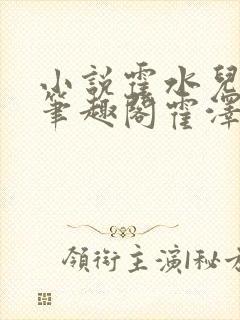 小說霍水兒
筆趣閣霍澤
領銜主演|秘方